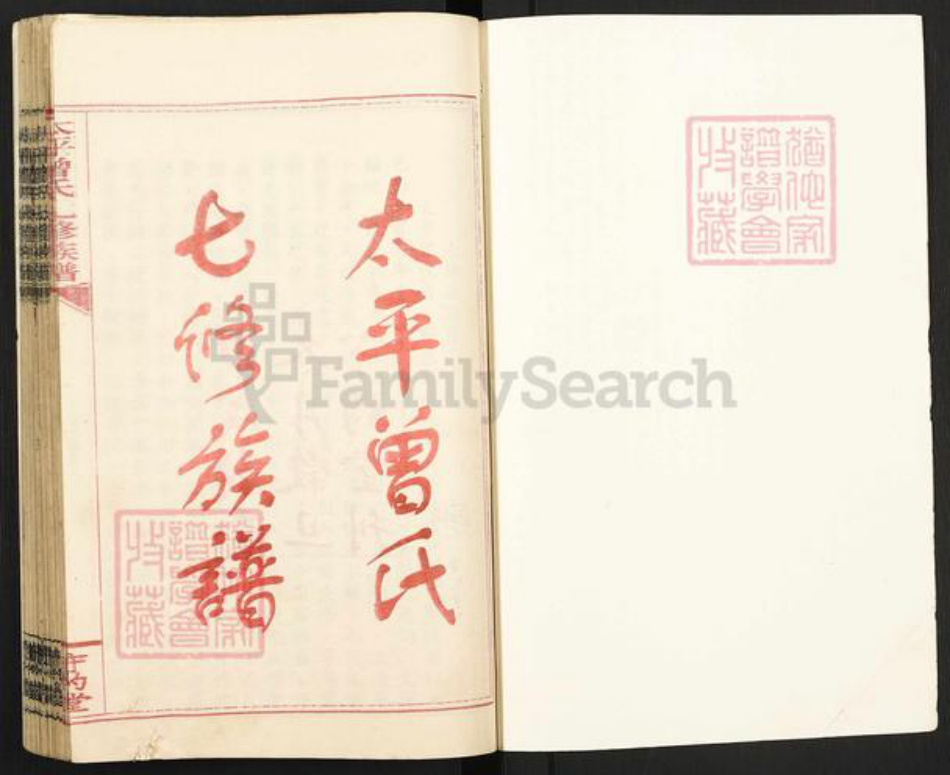 太平曾氏
七修族譜
太平曾氏七修族譜
猶他家
譜學會
收藏
猶他家
譜學會
收藏
FamilySearch